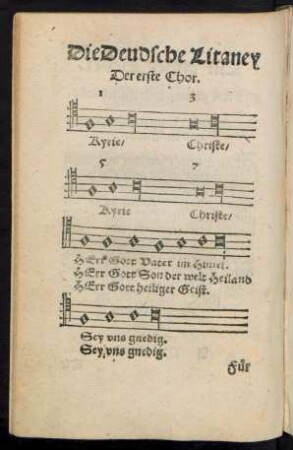 Die Deudsche Litaney
Der erste Chor.
1 3
Kyrie/ Christe/
5 7
Kyrie Christe/
HErr Gott Vater im Himel.
HErr Gott Son der welt Heiland
HErr Gott heiliger Geist.
Sey vns gnedig.
Sey vns gnedig.
Für